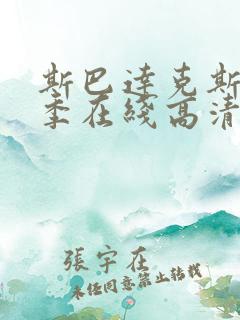 斯巴達克斯
季在綫高清
張宇在
未经同意禁止转载